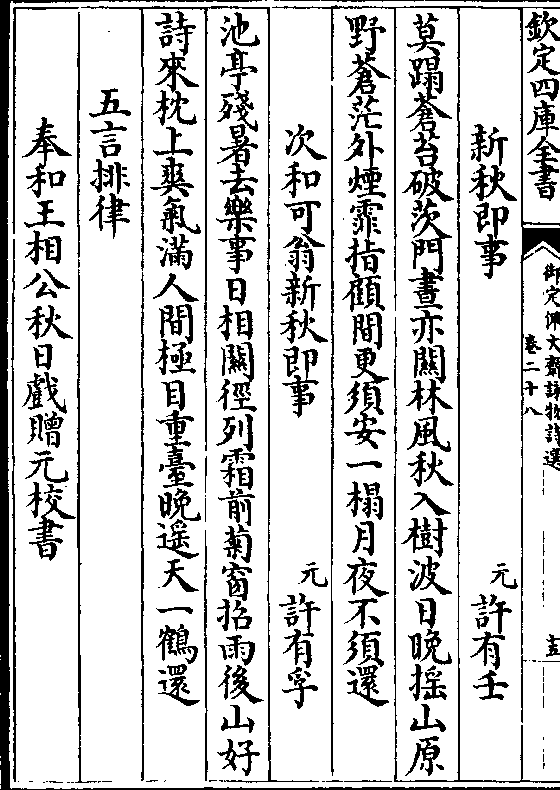 欽定四庫全書
御定佩文齋詠物詩選
卷二十八
新秋即事
元許有壬
莫蹋蒼苔破茨門晝亦關林風秋入樹波日晚搖山原
野蒼茫外煙霏指顧間更須安一榻月夜不須還
次和可翁新秋即事
元許有孚
池亭殘暑去樂事日相關徑列霜前菊窗招雨後山好
詩來枕上爽氣滿人間極目重臺晚遥天一鶴還
五言排律
奉和王相公秋日戲贈元校書